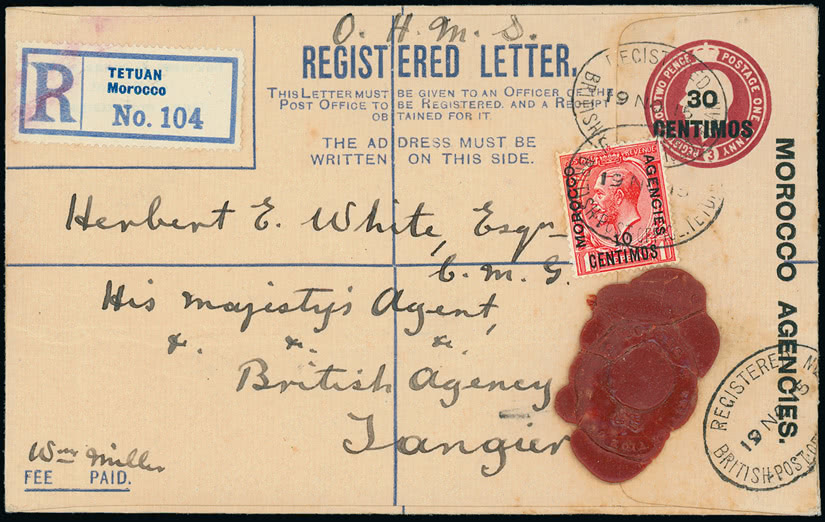 O. H. M. S.
REGISTERED LETTER.
THIS LETTER MUST BE GIVEN TO AN OFFICER OF THE
POST OFFICE TO BE REGISTERED, AND A RECEIPT
OBTAINED FOR IT.
THE ADDRESS MUST BE
WRITTEN ON THIS SIDE.
R
TETUAN
Morocco
No. 104
POSTAGE ONE PENNY
TWO PENCE
30
CENTIMOS
REGISTERED
19 NO 15
BRITISH
MOROCCO AGENCIES
REVENUE
10
CENTIMOS
1
19 15
BRITISH POST TETU
MOROCCO AGENCIES.
Herbert E. White, Esqre
C. M. G.
His Majesty's Agent,
&. &. &.
British Agency
Tangier
REGISTERED
19 NO 15
BRITISH POST OF
Wm Miller
FEE PAID.